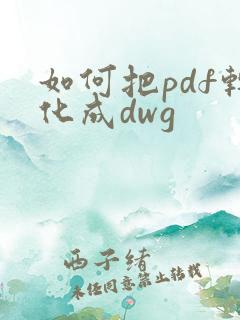 如何把pdf转
化成dwg
西子绪
未经同意禁止转载